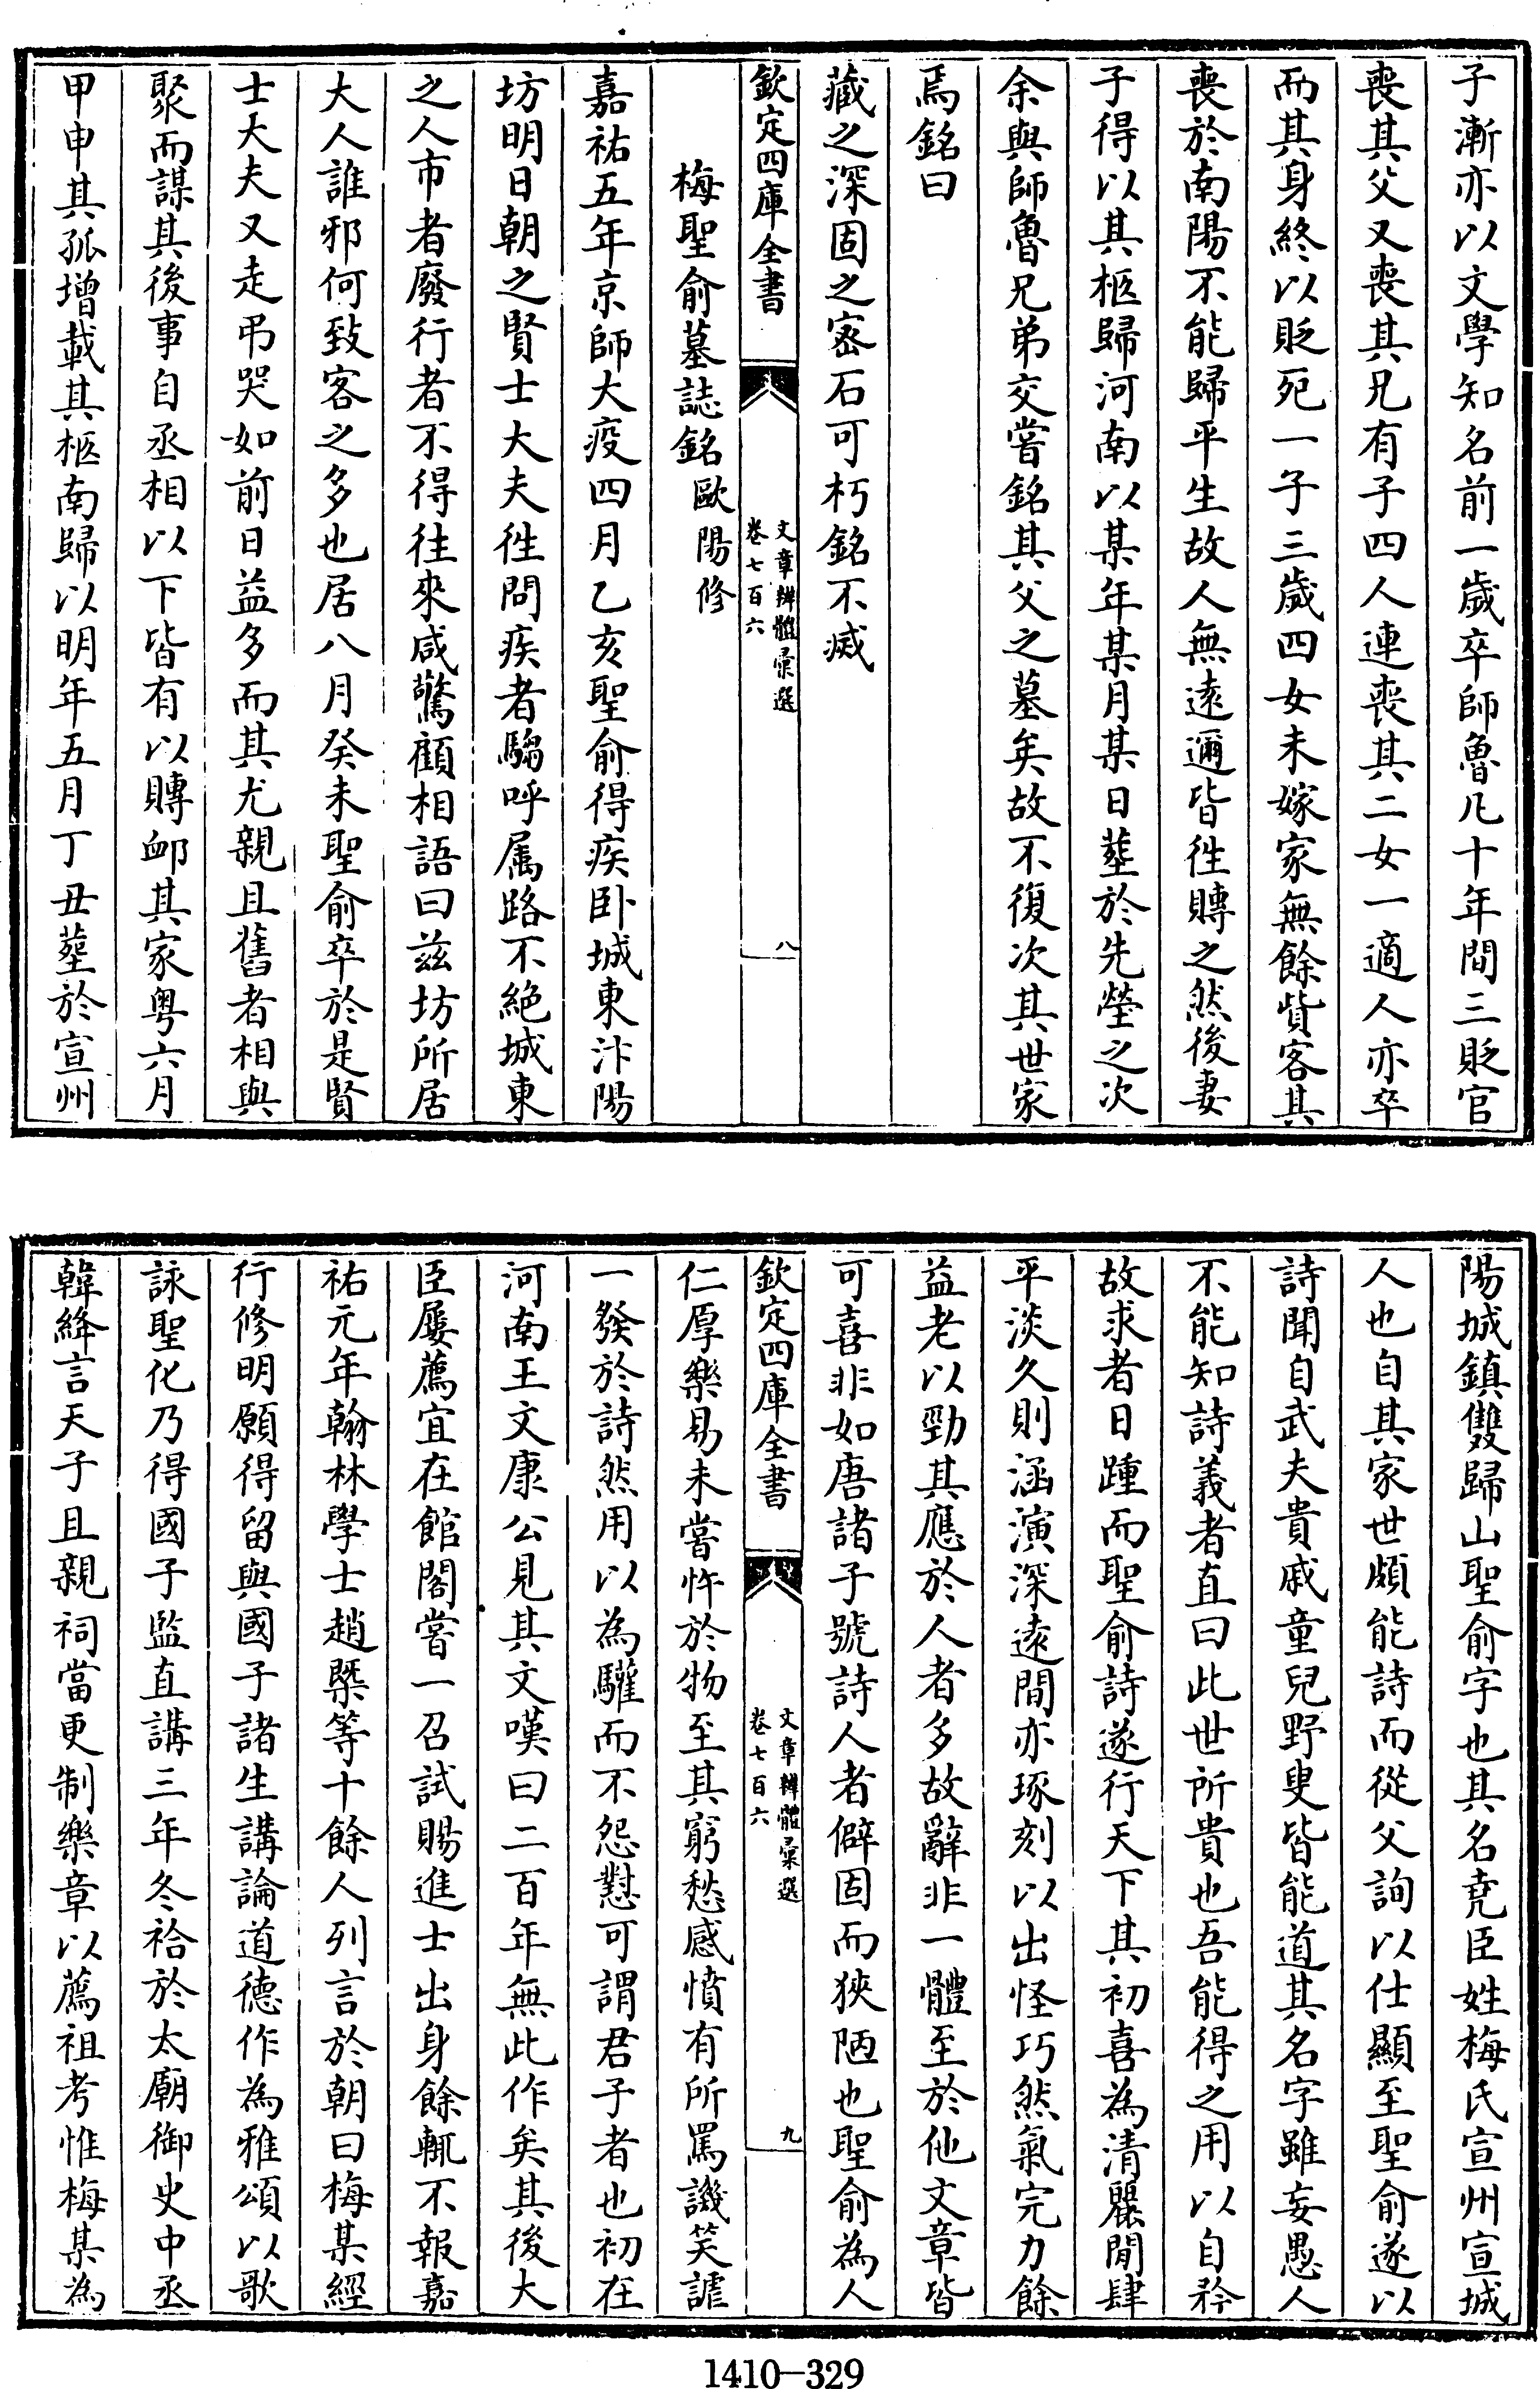 子漸亦以文學知名前一歲卒師魯凡十年間三貶官
喪其父又喪其兄有子四人連喪其二女一適人亦卒
而其身終以貶死一子三歲四女未嫁家無餘貲客其
喪於南陽不能歸平生故人無遠邇皆徃賻之然後妻
子得以其柩歸河南以某年某月某日葬於先塋之次
余與師魯兄弟交嘗銘其父之墓矣故不復次其世家
焉銘曰
藏之深固之宻石可朽銘不滅
欽定四庫全書
文章辨體彚選
卷七百六
八
梅聖俞墓誌銘歐陽修
嘉祐五年京師大疫四月乙亥聖俞得疾卧城東汴陽
坊明日朝之賢士大夫徃問疾者騶呼属路不絶城東
之人市者廢行者不得徃來咸驚顧相語曰兹坊所居
大人誰邪何致客之多也居八月癸未聖俞卒於是賢
士大夫又走弔哭如前日益多而其尤親且舊者相與
聚而謀其後事自丞相以下皆有以賻衈其家粤六月
甲申其孤增載其柩南歸以明年五月丁丑葬於宣州
陽城鎮雙歸山聖俞字也其名堯臣姓梅氏宣州宣城
人也自其家世頗能詩而從父詢以仕顯至聖俞遂以
詩聞自武夫貴戚童兒野叟皆能道其名字雖妄愚人
不能知詩義者直曰此世所貴也吾能得之用以自矜
故求者日踵而聖俞詩遂行天下其初喜為清麗閒肆
平淡久則涵演深遠間亦琢刻以出怪巧然氣完力餘
益老以勁其應於人者多故辭非一體至於他文章皆
可喜非如唐諸子號詩人者僻固而狹陋也聖俞為人
欽定四庫全書
文章辨體彚選
卷七百六
九
仁厚樂易未嘗忤於物至其窮愁感憤有所罵譏笑謔
一發於詩然用以為驩而不怨懟可謂君子者也初在
河南王文康公見其文嘆曰二百年無此作矣其後大
臣屢薦宜在館閣嘗一召試賜進士出身餘輒不報嘉
祐元年翰林學士趙槩等十餘人列言於朝曰梅某經
行修明願得留與國子諸生講論道德作為雅頌以歌
詠聖化乃得國子監直講三年冬祫於太廟御史中丞
韓絳言天子且親祠當更制樂章以薦祖考惟梅某為
1410-329